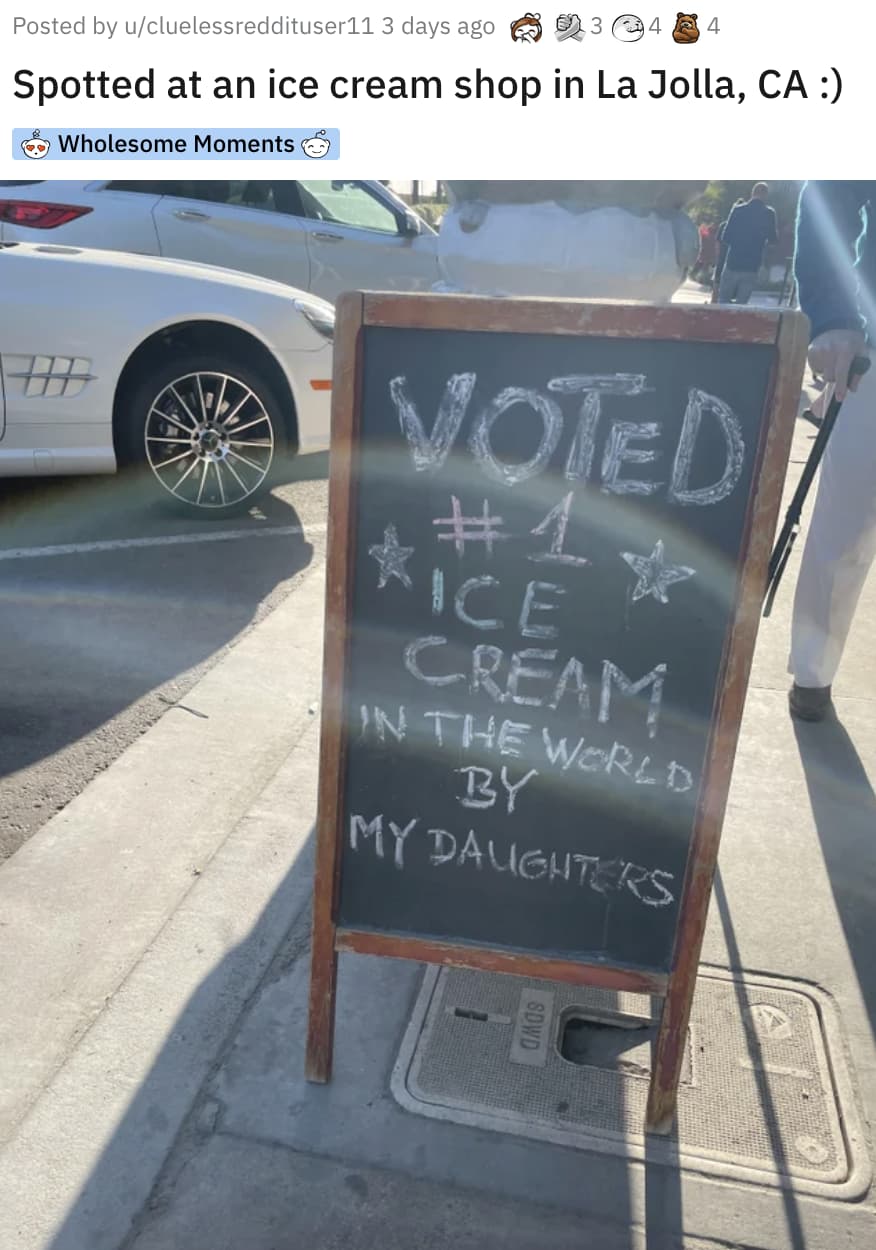 Posted by u/cluelessreddituser11 3 days ago 3 4 4
Spotted at an ice cream shop in La Jolla, CA :)
Wholesome Moments
VOTED
#1
ICE
CREAM
IN THE WORLD
BY
MY DAUGHTERS
SDWD